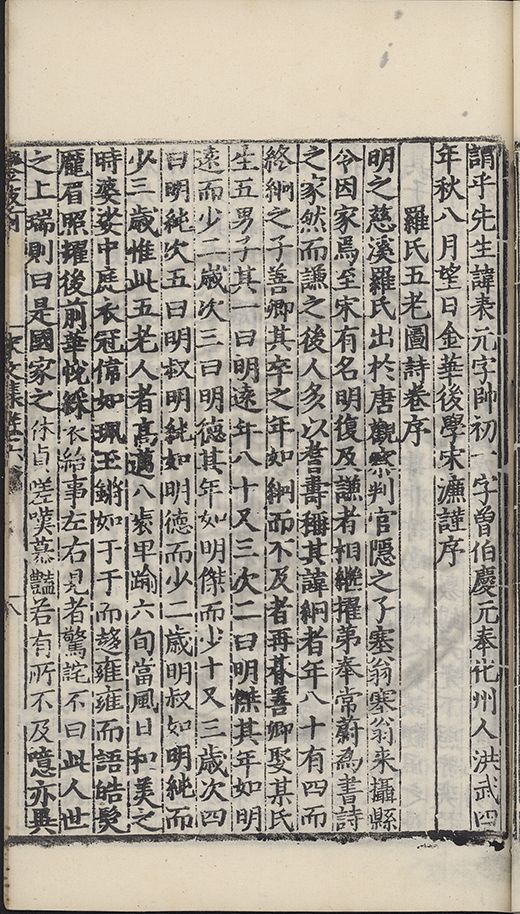 謂乎先生諱表元字帥初一字曾伯慶元奉化州人洪武四
年秋八月望日金華後學宋濂謹序
羅氏五老圖詩卷序
明之慈溪羅氏出於唐觀察判官隱之子塞翁塞翁来攝縣
令因家焉至宋有名明復及謙者相繼擢弟奉常蔚為書詩
之家然而謙之後人多以耆壽稱其諱絅者年八十有四而
終絅之子善卿其卒之年如絅而不及者再朞善卿娶某氏
生五男子其一曰明遠年八十又三次二曰明傑其年如明
遠而少二歲次三曰明德其年如明傑而少十又三歲次四
曰明純次五曰明叔明純如明德而少二歲明叔如明純而
少三歲惟此五老人者高邁八袠卑踰六旬當風日和美之
時婆娑中庭衣冠偉如珮玉鏘如于于而趍雍雍而語皓髮
龎眉照耀後前華帨綵衣給事左右見者驚詫不曰此人世
之上瑞則曰是國家之休貞嗟嘆慕豔若有所不及噫亦異